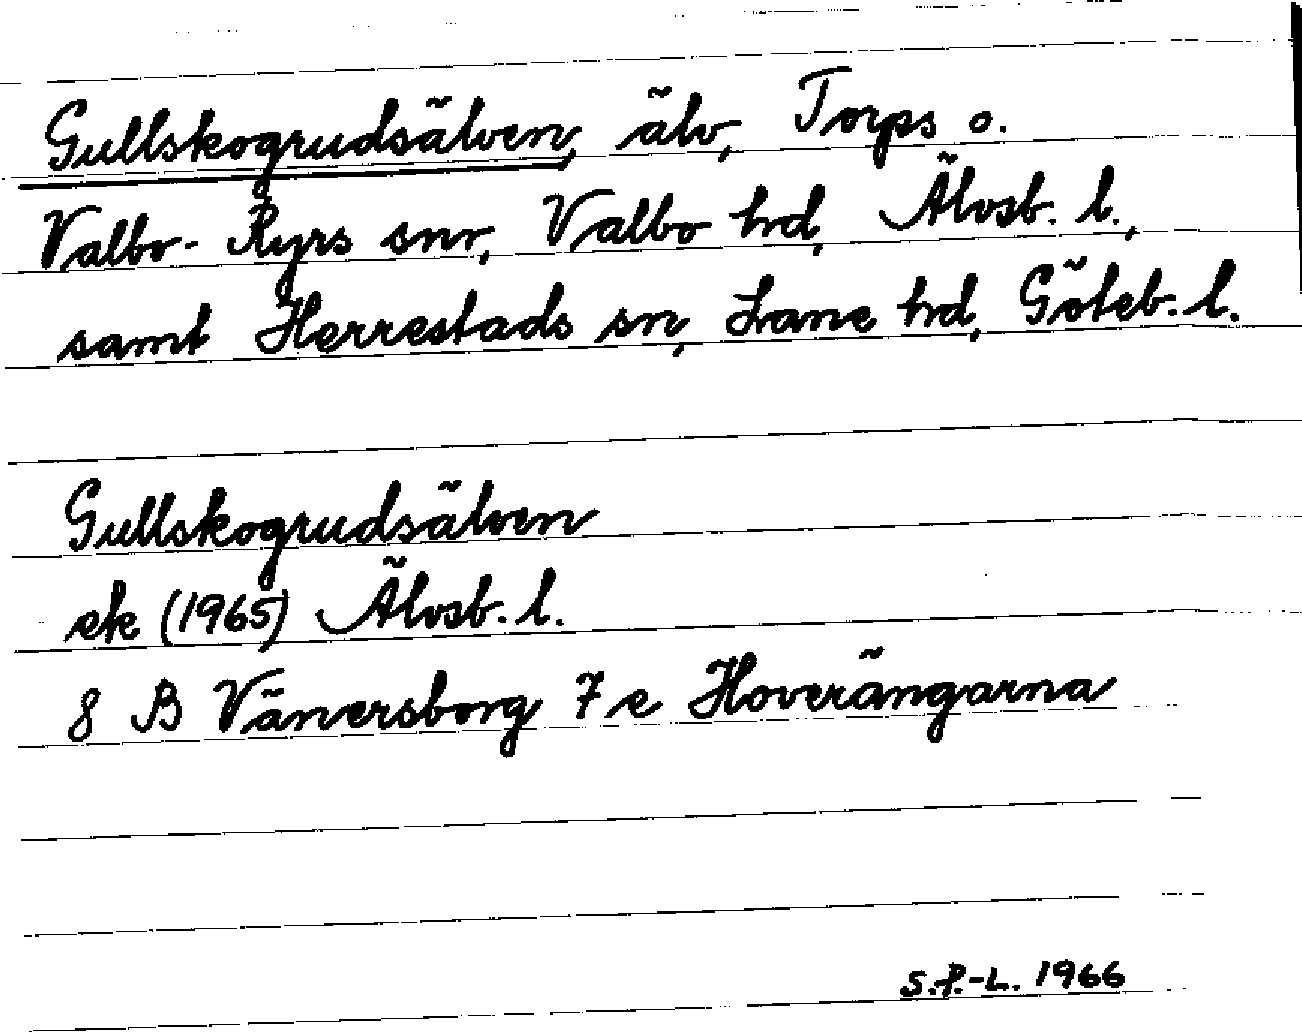 Gullskogrudsälven, älv, Torps o.
Valbo-Ryrs snr, Valbo hd, Älvsb. l.,
samt Herrestads sn, Lane hd, Göteb. l.
Gullskogrudsälven
ek (1965) Älvsb. l.
8 B Vänersborg 7 e Hoverängarna
S.P.-L. 1966